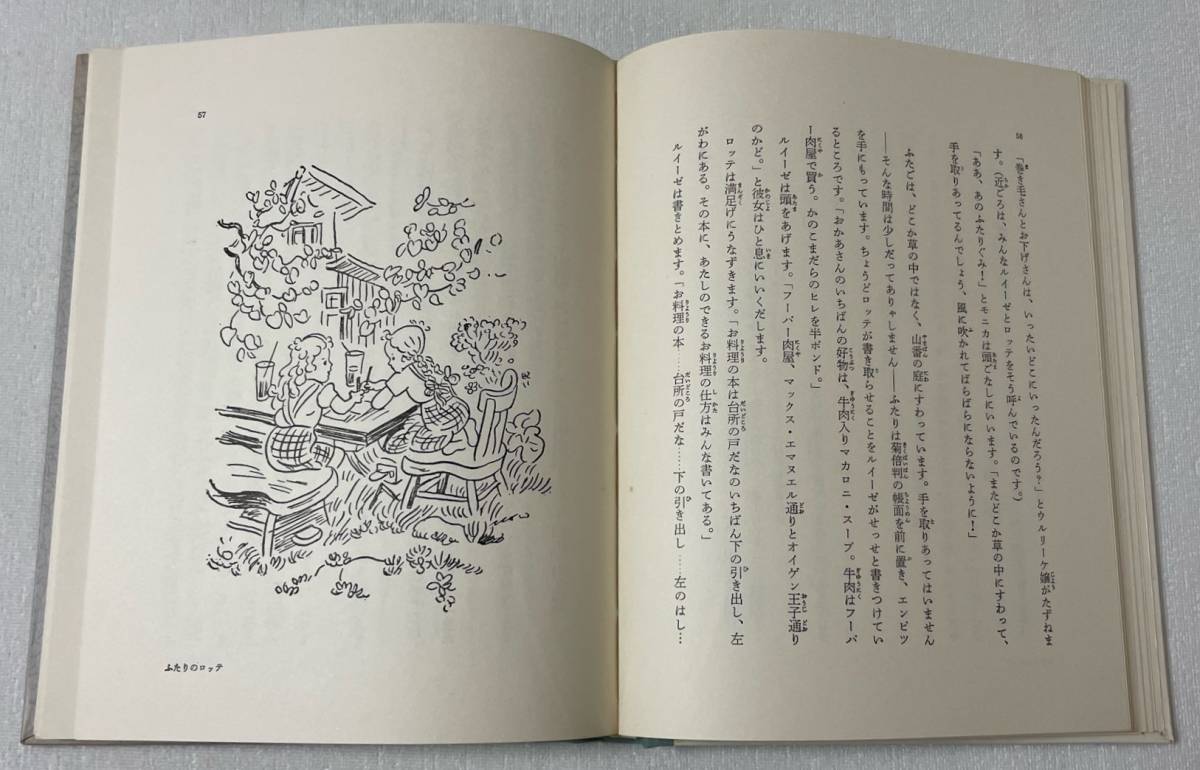 56
「巻き毛さんとお下げさんは、いったいどこにいったんだろう?」とウルリーケ嬢がたずねま
す。(近ごろは、みんなルイーゼとロッテをそう呼んでいるのです。)
「ああ、あのふたりぐみ!」とモニカは頭ごなしにいいます。「またどこか草の中にすわって、
手を取りあってるんでしょう、風に吹かれてばらばらにならないように!」
ふたごは、どこか草の中ではなく、山番の庭にすわっています。手を取りあってはいません
——そんな時間は少しだってありゃしません——ふたりは菊倍判の帳面を前に置き、エンピツ
を手にもっています。ちょうどロッテが書き取らせることをルイーゼがせっせと書きつけてい
るところです。「おかあさんのいちばんの好物は、牛肉入りマカロニ・スープ。牛肉はフーバ
ー肉屋で買う。かのこまだらのヒレを半ポンド。」
ルイーゼは頭をあげます。「フーバー肉屋、マックス・エマヌエル通りとオイゲン王子通り
のかど。」と彼女はひと息にいいくだします。
ロッテは満足げにうなずきます。「お料理の本は台所の戸だなのいちばん下の引き出し、左
がわにある。その本に、あたしのできるお料理の仕方はみんな書いてある。」
ルイーゼは書きとめます。「お料理の本……台所の戸だな……下の引き出し……左のはし…
57
ふたりのロッテ